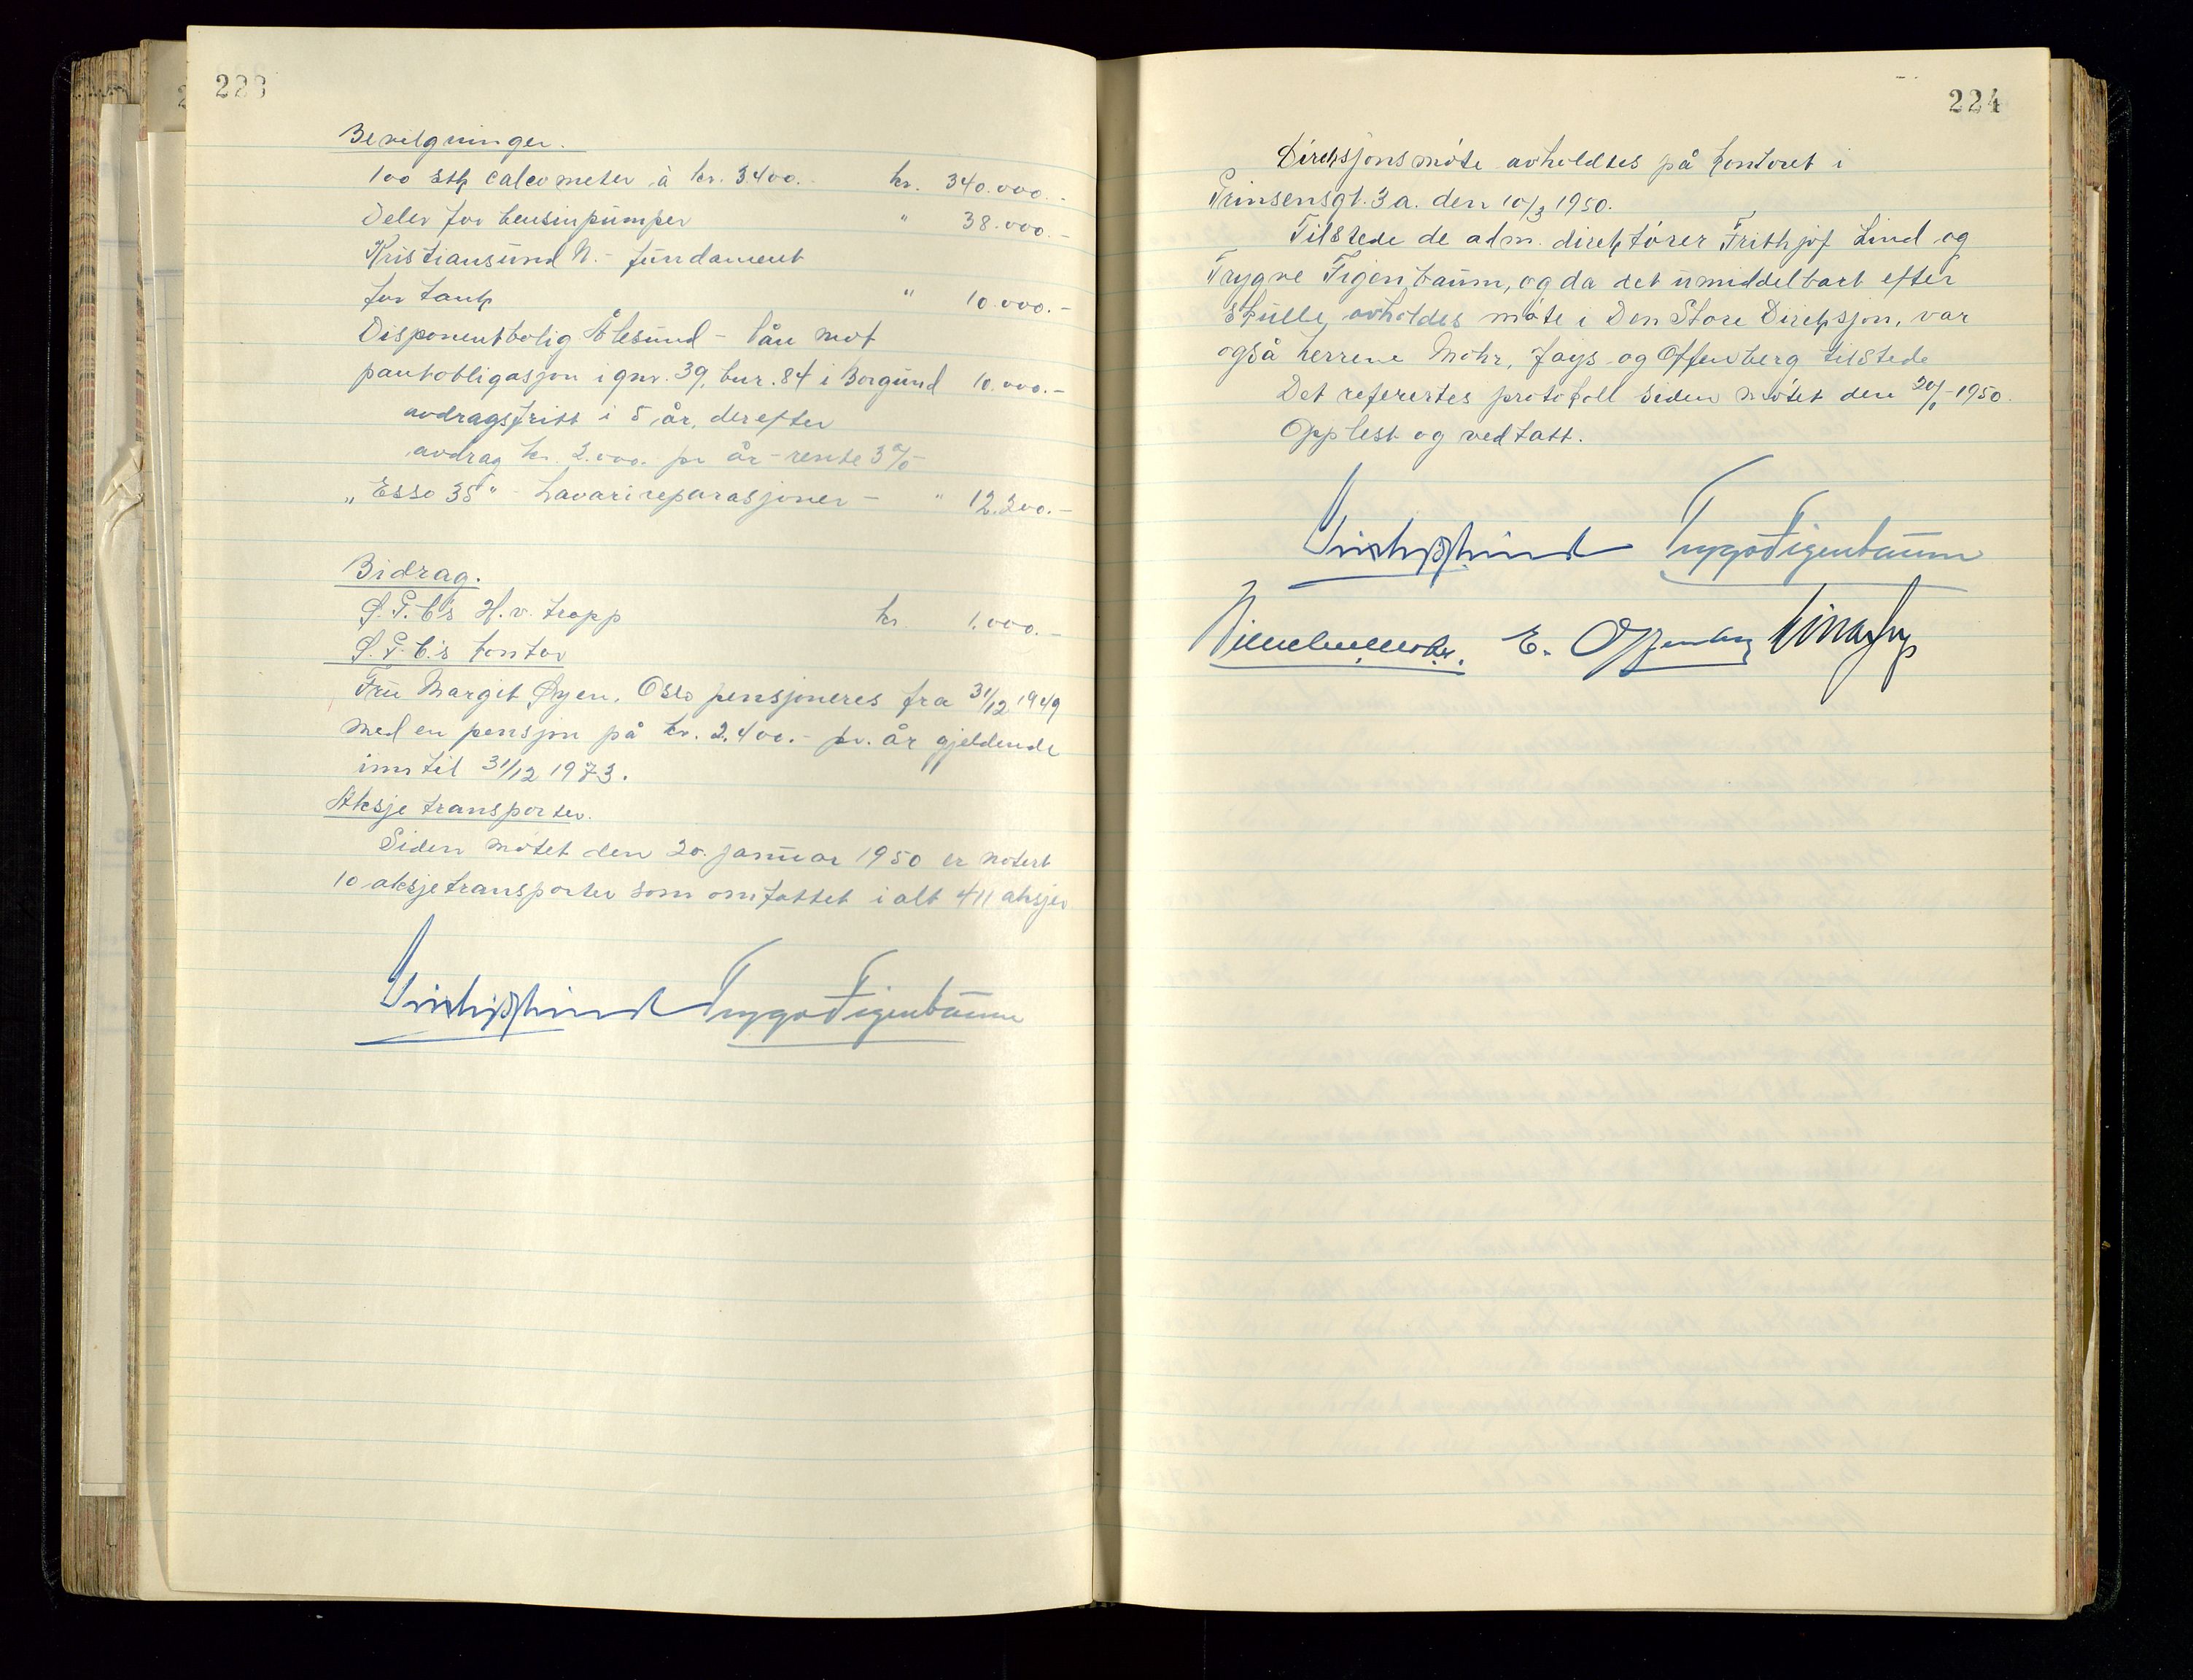 223
Bevilgninger.
100 stk calcometer à kr. 3400.- kr. 340.000.-
Deler for bensinpumper " 38.000.-
Kristiansund N. - fundament
for tank " 10.000.-
Disponentbolig Ålesund - lån mot
pantobligasjon i gnr. 39, bnr. 84 i Borgund 10.000.-
avdragsfritt i 5 år, derefter
avdrag kr. 2.000. pr år - rente 3%
"Esso 35" - havarireparasjoner - " 12.200.-
Bidrag.
H.v. tropp kr 1.000.-
kontor
Fru Margit Øyen, Oslo pensjoneres fra 31/12 1949
med en pensjon på kr. 2.400.- pr. år gjeldende
inntil 31/12 1973.
Aksjetransporter.
Siden møtet den 20. januar 1950 er notert
10 aksjetransporter som omfattet i alt 411 aksjer
Frithjof Lind Trygve Figenbaum
224
Direksjonsmøte avholdtes på kontoret i
Prinsensgt. 3a. den 10/3 1950.
Tilstede de adm. direktører Frithjof Lind og
Trygve Figenbaum, og da det umiddelbart efter
skulle avholdes møte i Den Store Direksjon, var
også herrene Mohr, Jays og Offenberg tilstede
Det refertes protokoll siden møtet den 20/1-1950.
Opplest og vedtatt.
Frithjof Lind Trygve Figenbaum
Wilhelm Mohr. E. Offenberg Einar Jays